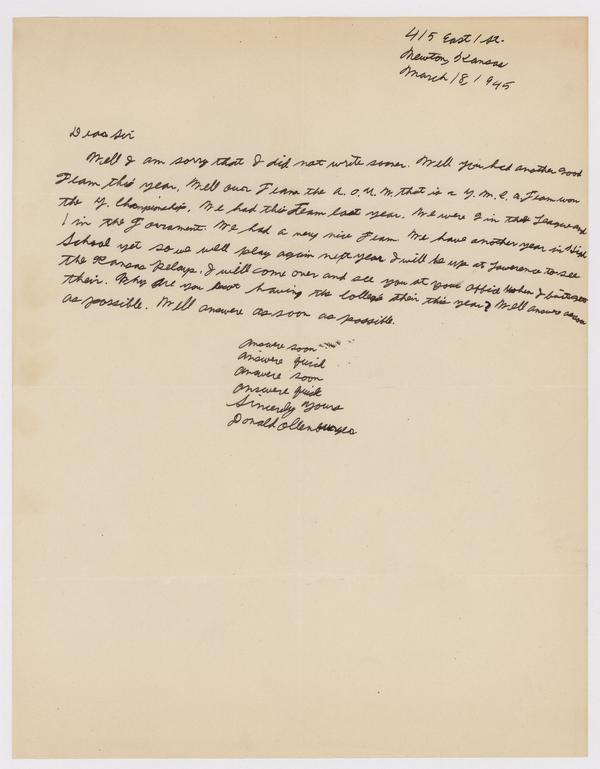 415 East 1 St.
Newton, Kansas
March 18, 1945
Dear Sir
Well I am sorry that I did not write sooner. Well you had another good
Team this year. Well our Team the A.O.U.W. that is a Y.M.C.A Team won
the Y. Championship. We had this Team last year. We were 2 in the League and
1 in the Tornament. We had a very nice Team. We have another year in High
School yet so we will play again next year. I will be up at Lawerence to see
the Kansas Relays. I will come over and see you at your office when I
their. Why are you having the college their this year? Well answere as soon
as possible. Well answere as soon as possible.
Answere soon
Answere quick
Answere soon
Answere quick
Sincerly Yours
Donald